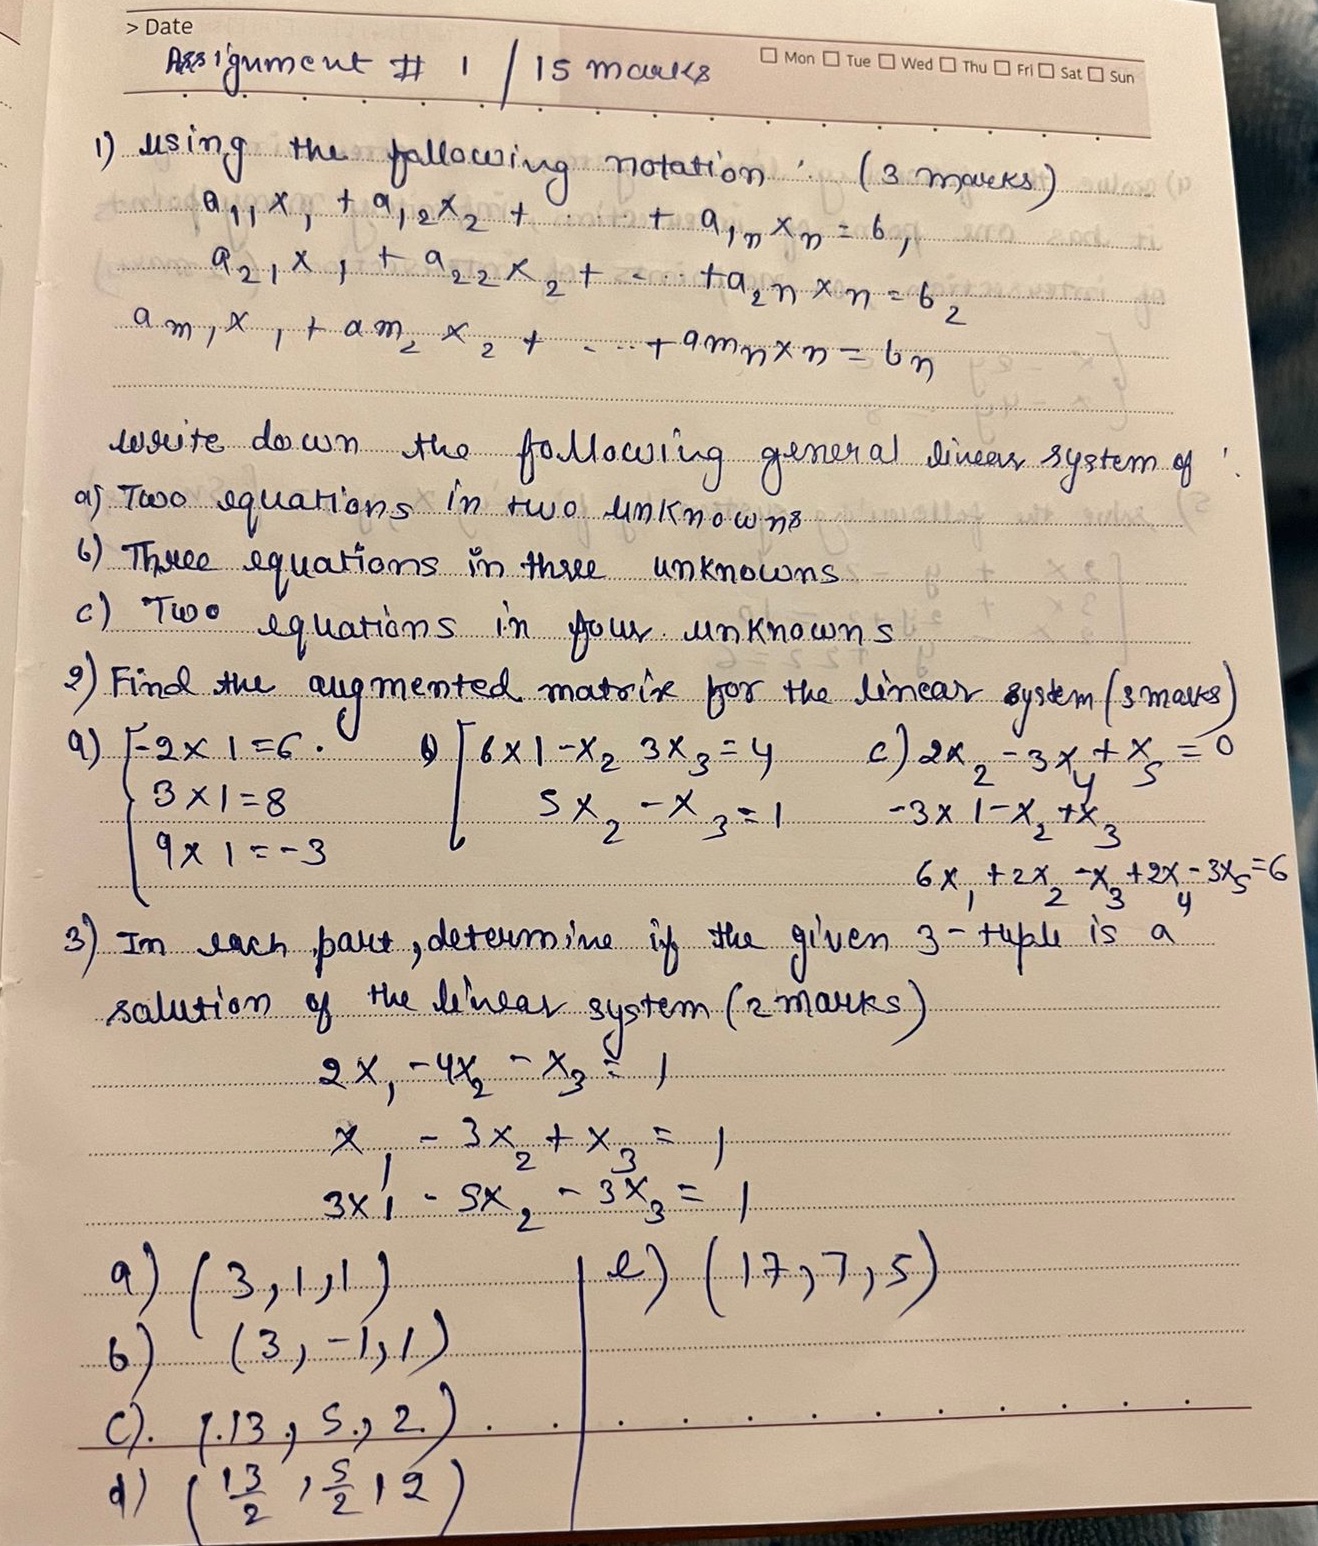 > Date
Assignment # 1 / 15 marks
Mon Tue Wed Thu Fri Sat Sun
1) using the following notation : (3 marks)
a₁₁x₁ + a₁₂x₂ + ..... + a₁ₙxₙ = b₁
a₂₁x₁ + a₂₂x₂ + .... + a₂ₙxₙ = b₂
aₘ₁x₁ + aₘ₂x₂ + .... + aₘₙxₙ = bₙ
write down the following general linear system of :
a) Two equations in two unknowns
b) Three equations in three unknowns
c) Two equations in four unknowns
2) Find the augmented matrix for the linear system (3 marks)
a) -2x1 = 6 . b) 6x1 - x₂ 3x₃ = 4 c) 2x₂ - 3x₄ + x₅ = 0
3x1 = 8 5x₂ - x₃ = 1 -3x1 - x₂ + x₃
9x1 = -3
6x₁ + 2x₂ - x₃ + 2x₄ - 3x₅ = 6
3) In each part, determine if the given 3-tuple is a
solution of the linear system (2 marks)
2x₁ - 4x₂ - x₃ = 1
x₁ - 3x₂ + x₃ = 1
3x1 - 5x₂ - 3x₃ = 1
a) (3, 1, 1)
b) (3, -1, 1)
c). (13, 5, 2)
d) (13/2, 5/2, 2)
e) (17, 7, 5)